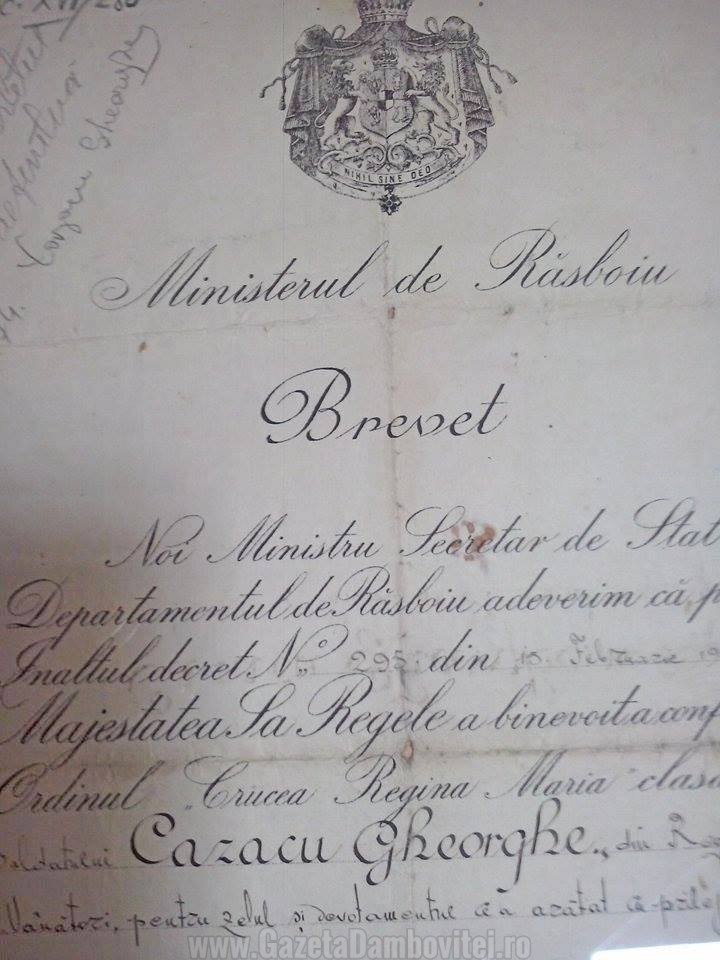 Gheorghe
NIHIL SINE DEO
Ministerul de Răsboiu
Brevet
Noi Ministru Secretar de Stat
Departamentul de Răsboiu adeverim că p
Inaltul decret No 295 din 15 Februarie 19
Majestatea Sa Regele a binevoit a conf
Ordinul „Crucea Regina Maria" clasa
Soldatului Cazacu Gheorghe„ din Reg
Vânători, pentru zelul și devotamentul ce a arătat cu prilej
www.GazetaDambovitei.ro